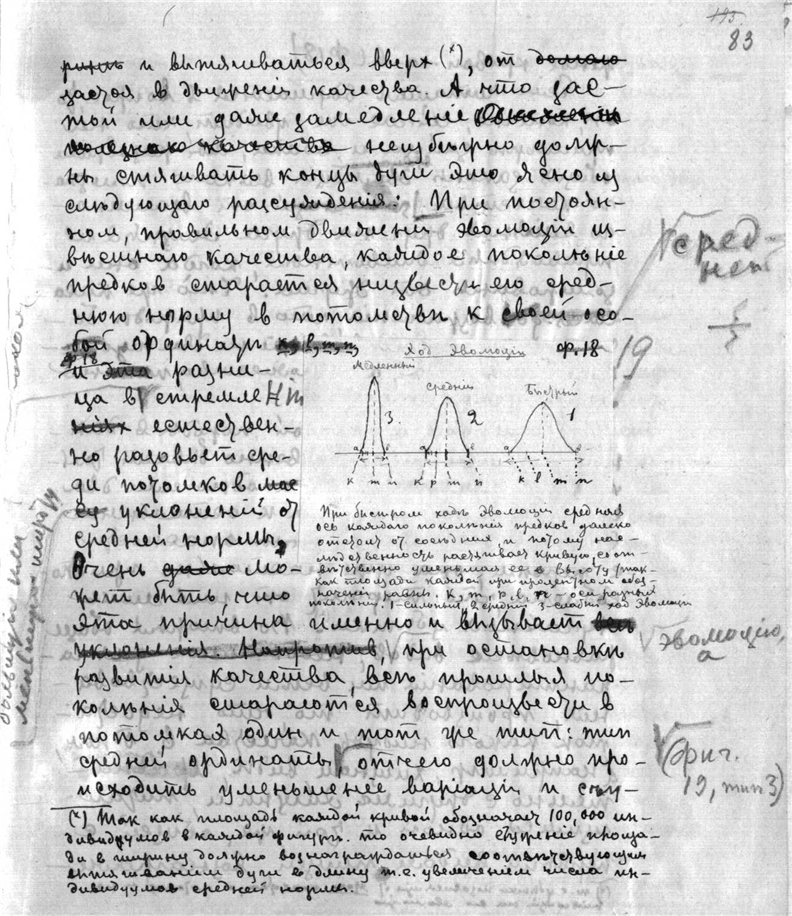 193
83
рить и вытягиваться вверх (*), от
застоя в движеніи качества. А что зас-
той или даже замедленіе
качества неизбѣжно долж-
нъ стягивать концы дуги это ясно из
слѣдующаго разсужденія: При постоян-
ном, правильном движеніи эволюціи из-
вѣстнаго качества, каждое поколѣніе
предков старается низвести его сред-
нюю норму в потомствѣ к своей осо-
бой ординатѣ
ф. 18
и эта разни-
ца в стремле
ніях естествен-
но разовьет сре-
ди потомков мас
су уклоненій от
средней нормы,
Очень даже мо-
жет быть что
эта причина именно и вызывает
уклоненія. Напротив, при остановкѣ
развитія качества, всѣ прошлыя по-
колѣнія стараются воспроизвести в
потомках один и тот же тип: тип
средней ординаты, отчего должно про-
исходить уменьшеніе варіацій и съу-
Ход Эволюціи ф. 18
Медленный
Средній
Быстрый
3. 2 1
к т п к р т п к в т п
При быстром ходѣ Эволюціи средняя
ось каждаго поколѣнія предков далеко
отстоит от сосѣдних и потому нас-
лѣдственность растягивает кривую, соот-
вѣтственно уменьшая ее в высоту (так-
как площади каждой при процентном обоз-
наченіи равны. К, т, р, в, п – оси разных
поколѣній. 1-сильный, 2 средній 3-слабый ход Эволюціи
(*) Так как площадь каждой кривой обозначает 100,000 ин-
дивидуумов в каждой фигурѣ, то очевидно съуженіе площа-
ди в ширину должно вознаграждаться соотвѣтствующим
вытягиваніем дуги в длину т.е. увеличеніем числа ин-
дивидуумов средней нормы.
сред-
ней
19
эволюцію,
а
(фиг.
19, тип 3)